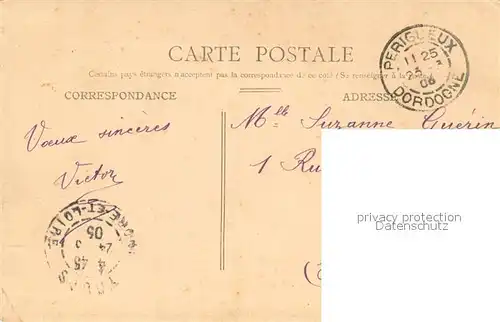 CARTE POSTALE
Certains pays étrangers n'acceptent pas la correspondance de ce côté (Se renseigner à la
CORRESPONDANCE
ADRESSE
PERIGUEUX
11 25
23 3
06
DORDOGNE
Vœux sincères
Victor
Mlle Suzanne Guérin
1 Ru
INDRE-ET-LOIRE
TOURS
4 45
24 3
privacy protection
Datenschutz